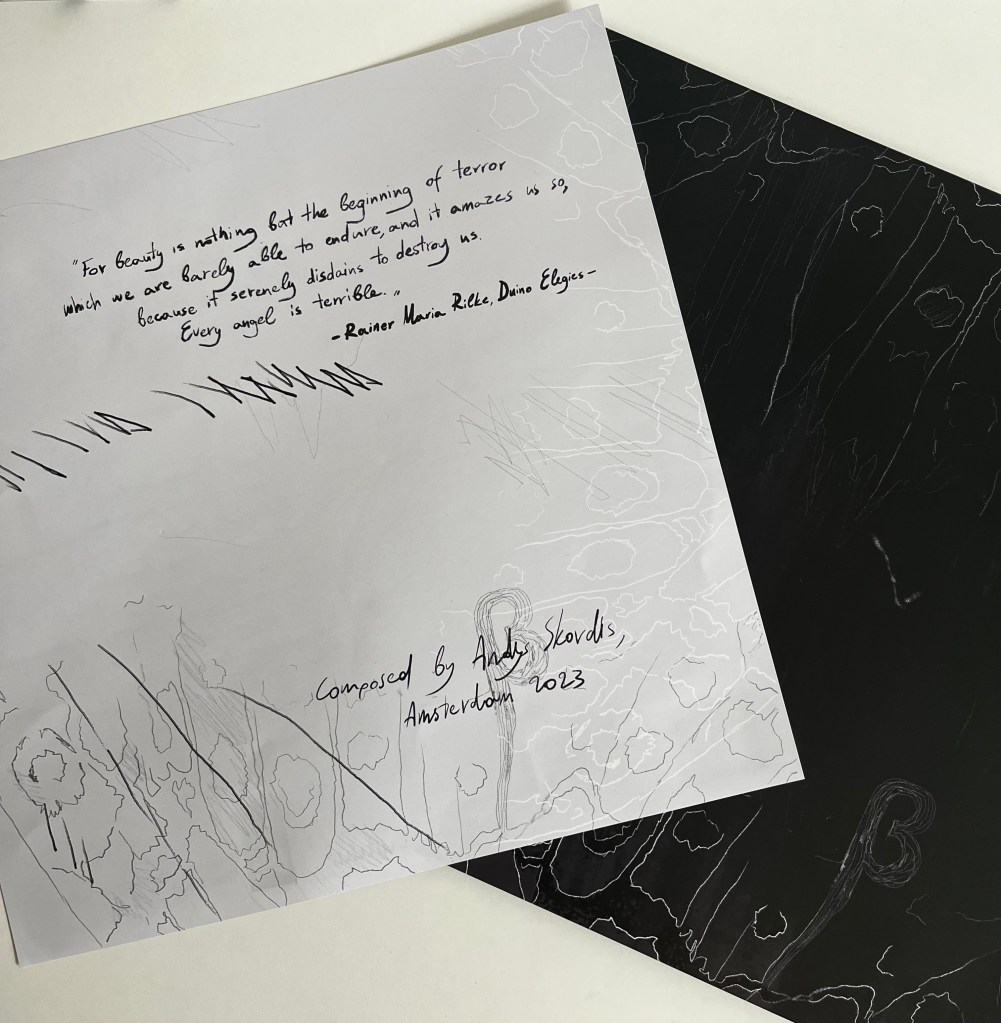 "For beauty is nothing but the beginning of terror
which we are barely able to endure, and it amazes us so,
because it serenely disdains to destroy us.
Every angel is terrible."
-Rainer Maria Rilke, Duino Elegies-
β
Composed by Andys Skordis,
Amsterdam 2023
β